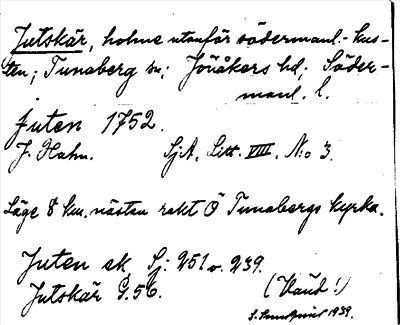 Jutskär, holme utanför södermanl.-kus-
ten; Tunaberg sn; Jönåkers hd; Söder-
manl. l.
Juten 1752.
J. Hahn. SjA, Litt. VIII, N:o 3.
Läge 8 km. nästan rakt Ö Tunabergs kyrka.
Juten sk Sj: 251 o. 239.
Jutskär G. 56. (Vaud!)
1939.